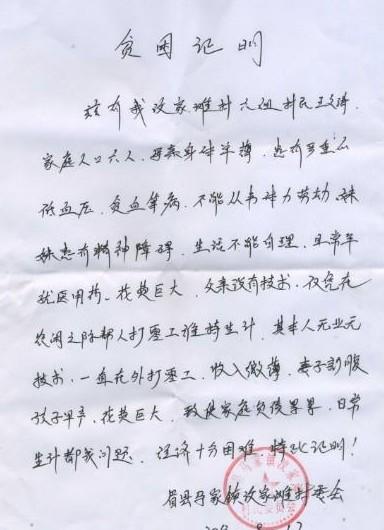 贫困证明
兹有我汶家滩村六组村民王文涛
家庭人口六人，母亲身体单薄，患有多重
低血压，贫血等病，不能从事体力劳动，妹
妹患有精神障碍，生活不能自理，且常年
就医用药，花费巨大，父亲没有技术，仅凭在
农闲之际帮人打零工维持生计，其本人无业无
技术，一直在外打零工，收入微薄，妻子剖腹
孩子早产，花费巨大，致使家庭负债累累，日常
生计都成问题，经济十分困难，特此证明！
眉县马家镇汶家滩村委会